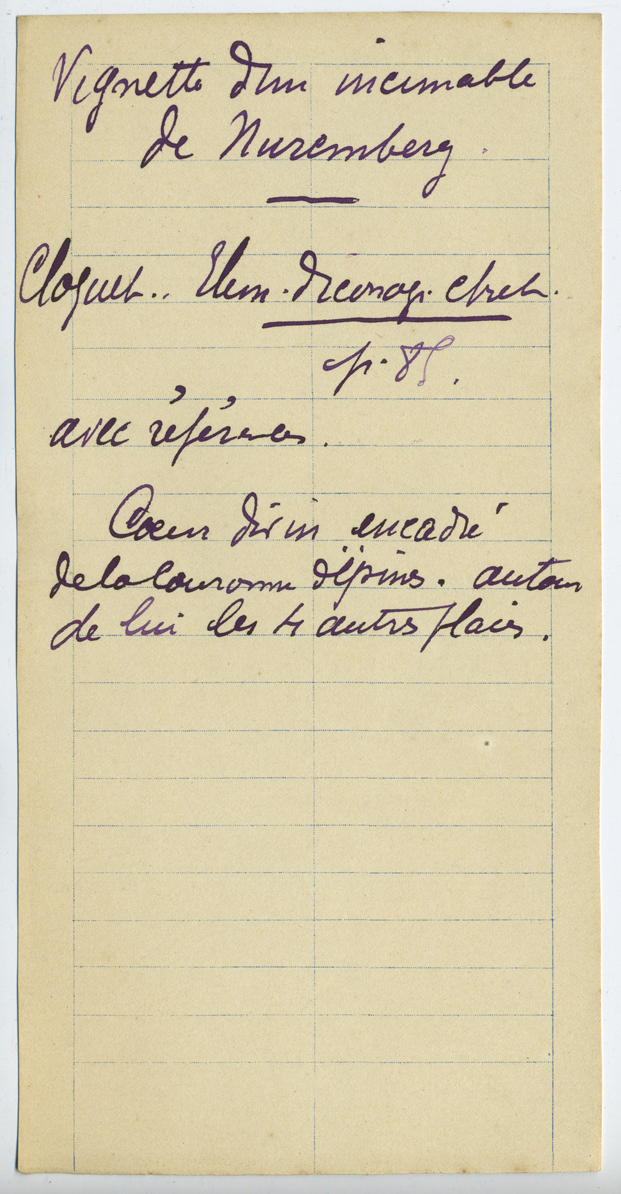 Vignette d'un incunable
de Nuremberg.
Cloquet.. Elem. d'iconogr. chret.
p. 85.
avec références.
Cœur divin encadré
de la couronne d'épines. autour
de lui les 4 autres plaies.